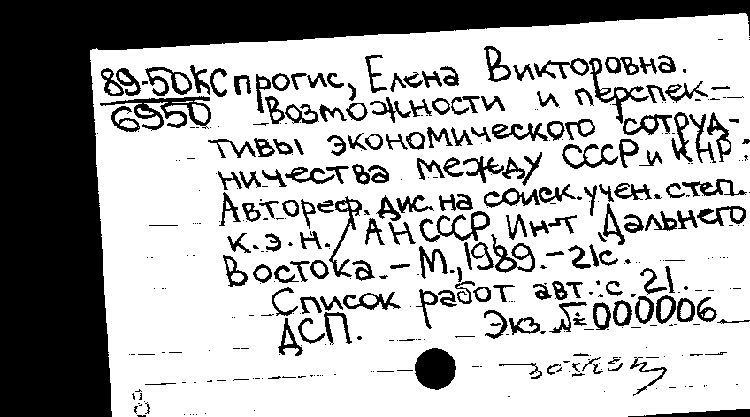 89-50К Спрогис, Елена Викторовна.
6950 Возможности и перспек-
тивы экономического сотруд-
ничества между СССР и КНР:
Автореф. дис. на соиск. учен. степ.
к.э.н. / АН СССР, Ин-т Дальнего
Востока. – М., 1989. – 21с.
Список работ авт.: с. 21.
ДСП. Экз. №=000006